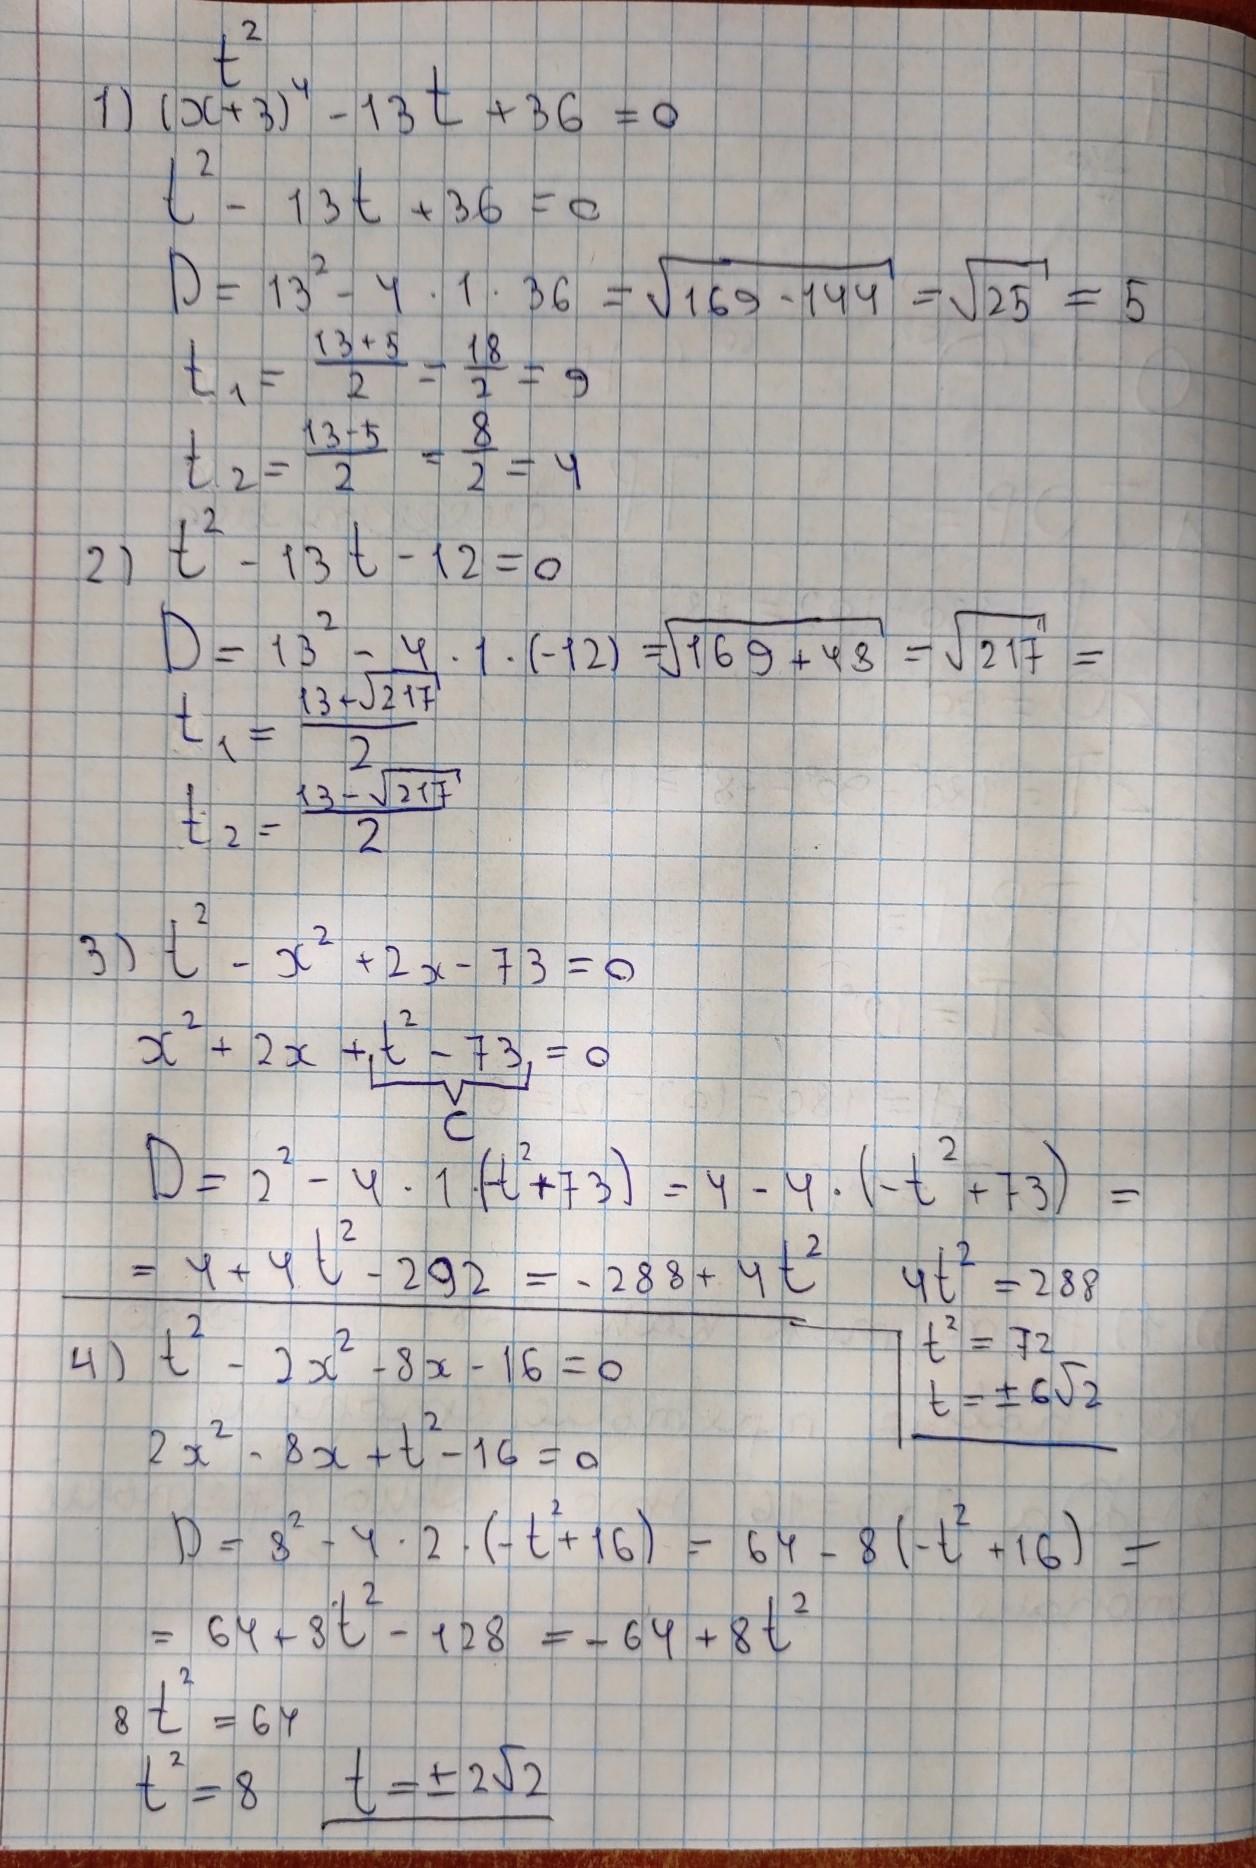 t²
1) (x+3)⁴ - 13t + 36 = 0
t² - 13t + 36 = 0
D = 13² - 4 · 1 · 36 = √169 - 144 = √25 = 5
t₁ = (13+5)/2 = 18/2 = 9
t₂ = (13-5)/2 = 8/2 = 4
2) t² - 13t - 12 = 0
D = 13² - 4 · 1 · (-12) = √169 + 48 = √217 =
t₁ = (13+√217)/2
t₂ = (13-√217)/2
3) t² - x² + 2x - 73 = 0
x² + 2x + t² - 73 = 0
C
D = 2² - 4 · 1 · (-t² + 73) = 4 - 4 · (-t² + 73) =
= 4 + 4t² - 292 = -288 + 4t²
4t² = 288
t² = 72
t = ±6√2
4) t² - 2x² - 8x - 16 = 0
2x² - 8x + t² - 16 = 0
D = 8² - 4 · 2 · (-t² + 16) = 64 - 8(-t² + 16) =
= 64 + 8t² - 128 = -64 + 8t²
8t² = 64
t² = 8 t = ±2√2